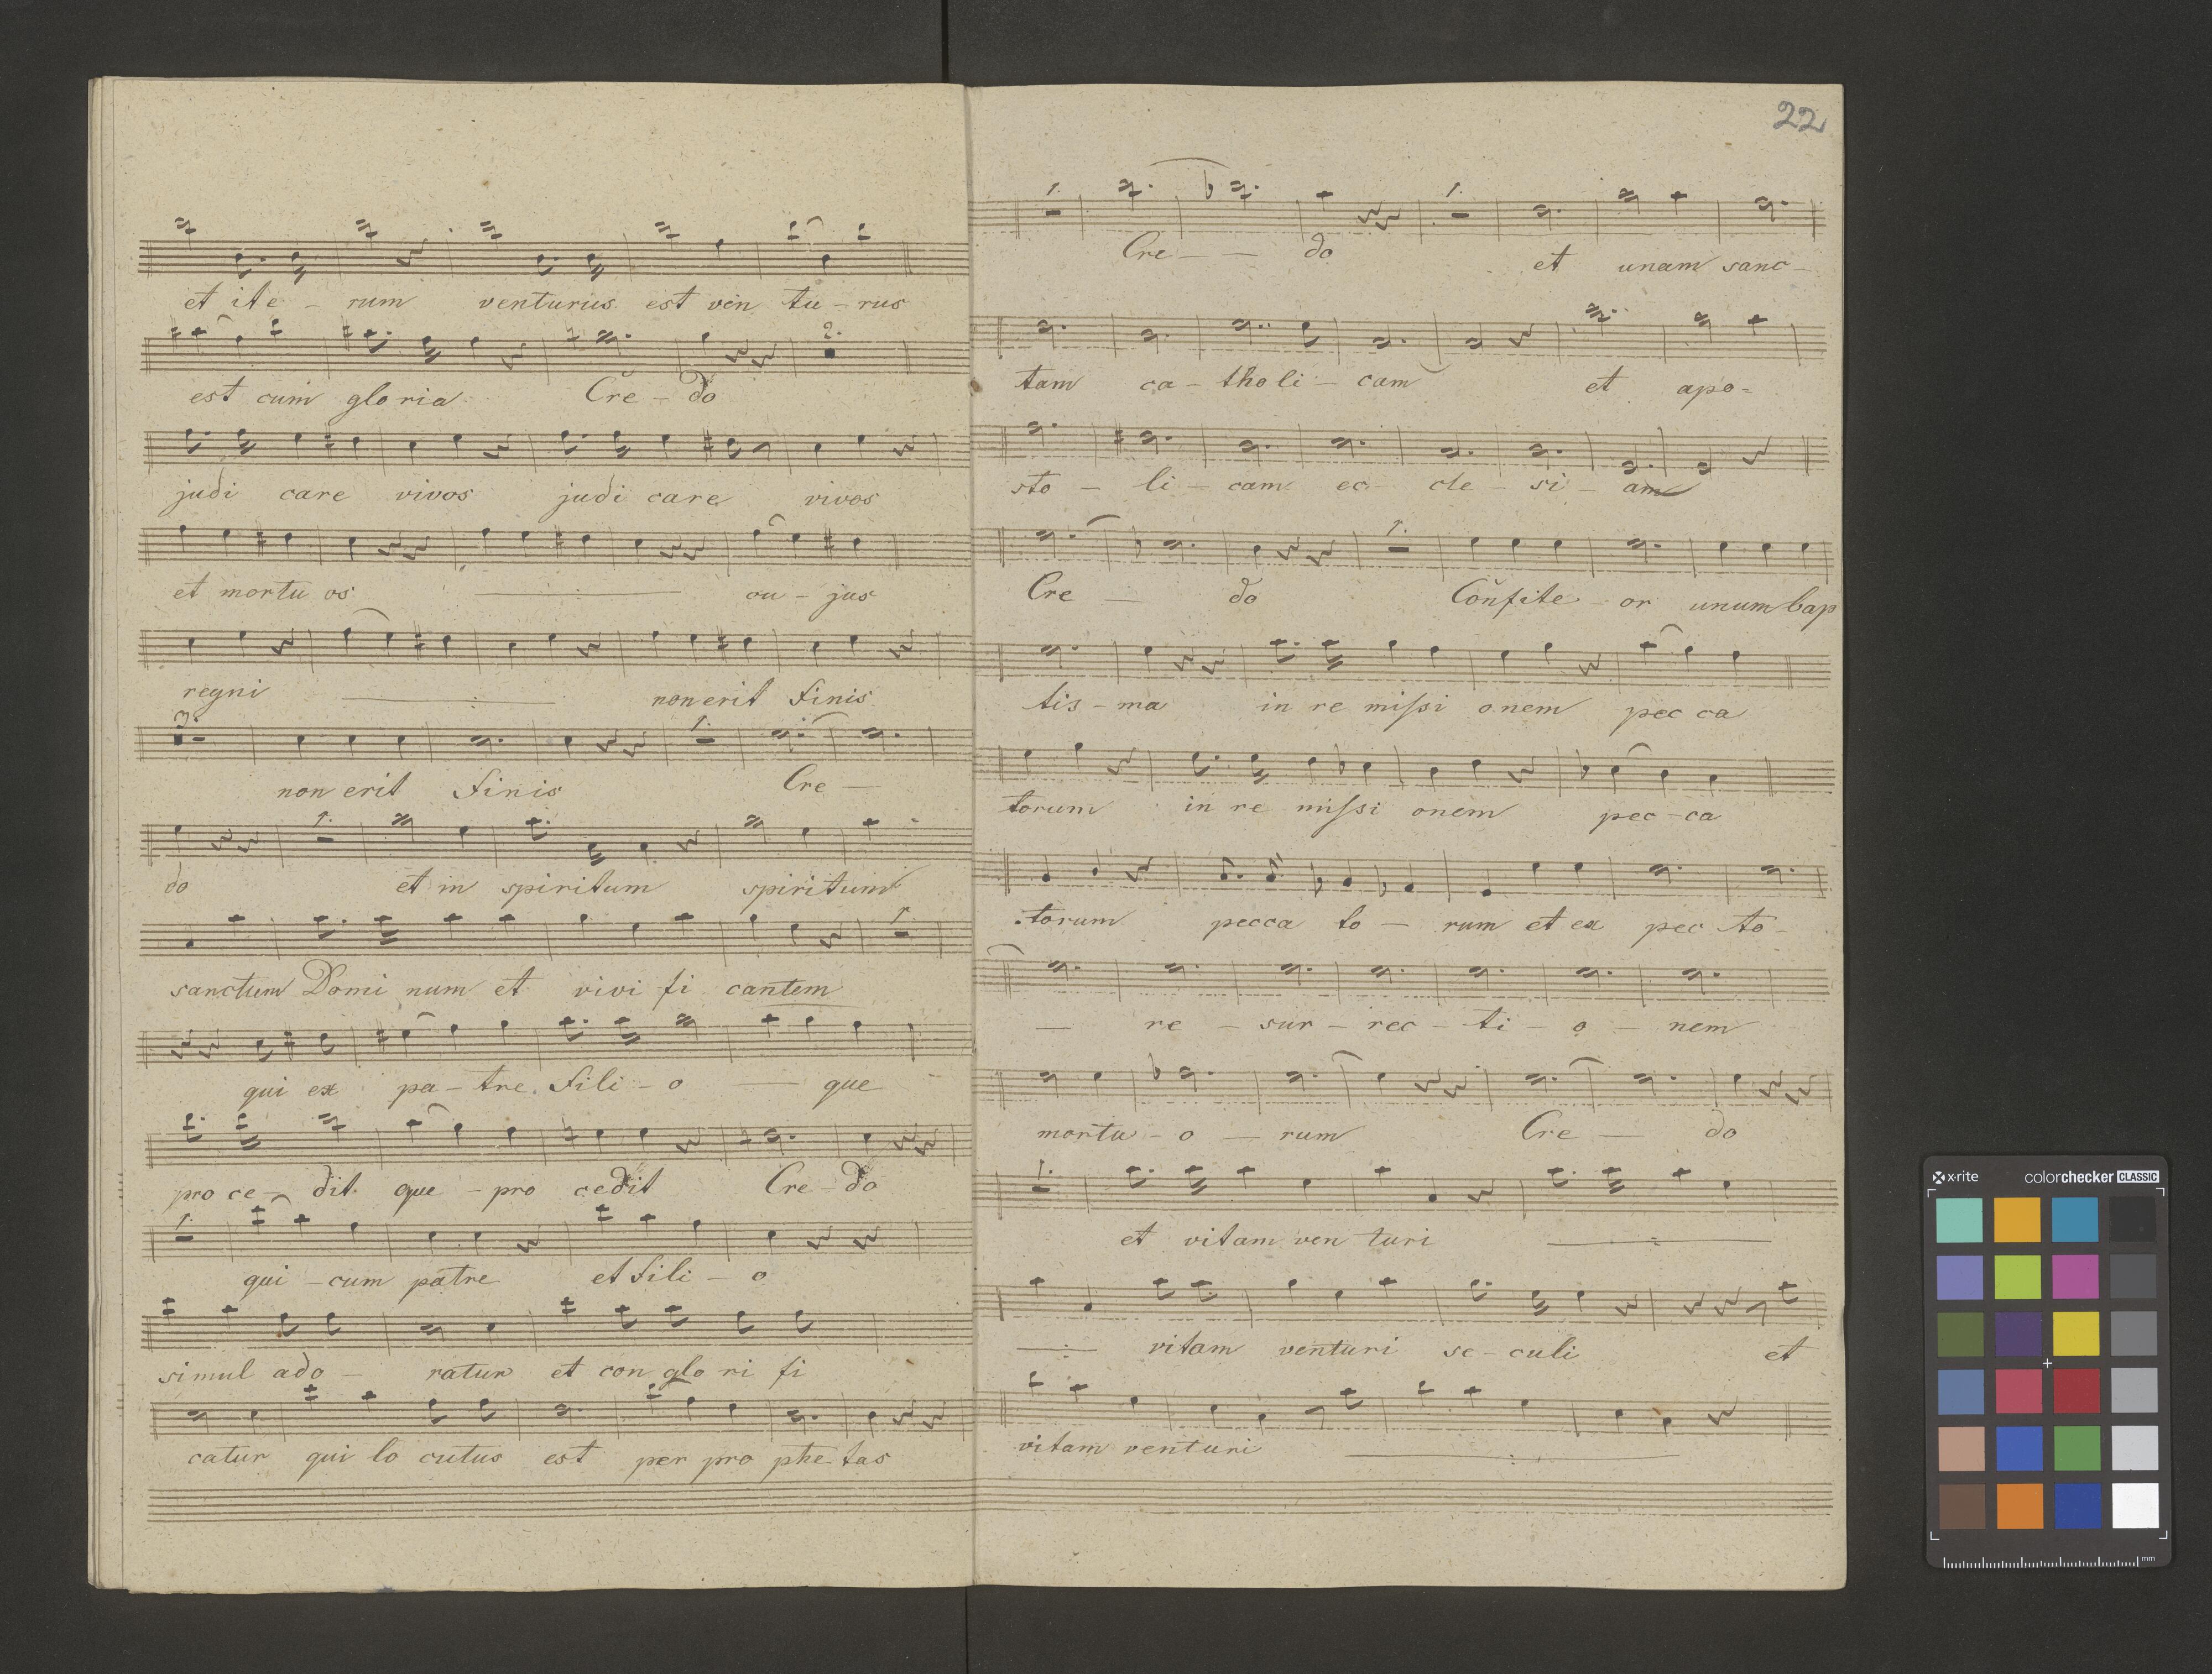 et ite - rum venturus est ven tu - rus
est cum gloria Cre - do
2.
judi care vivos judi care vivos
et mortu os cu - jus
regni non erit finis
3.
1.
non erit finis Cre -
1.
do et in spiritum spiritum
1.
sanctum Domi num et vivi fi cantem
qui ex pa - tre fili - o - que
pro ce - dit que - pro cedit Cre - do
1.
qui - cum patre et fili - o
simul ado - ratur et con glo ri fi
catur qui lo cutus est per pro phe tas
22
1.
1.
Cre - - do et unam sanc -
tam ca - tholi - cam et apo =
sto - li - cam ec - cle - si - am
1.
Cre - do Confite - or unum bap
tis - ma in re missi onem pec ca
torum in re missi onem pec - ca
torum pecca to - rum et ex pec to -
- re - sur - rec - ti - o - nem
mortu - o - rum Cre - do
1.
et vitam ven turi
vitam venturi se - culi et
vitam venturi
x-rite colorchecker CLASSIC
mm